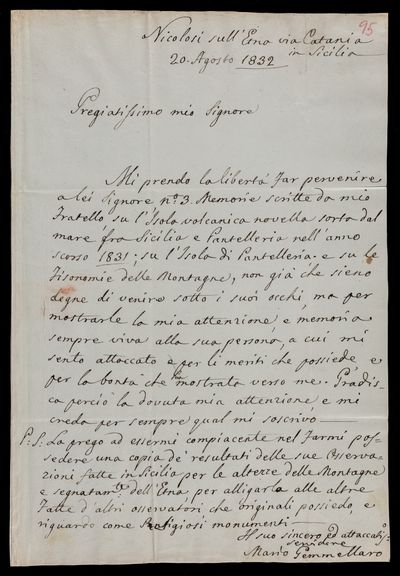 95
Nicolosi sull'Etna via Catania
in Sicilia
20. Agosto 1832
Pregiatissimo mio Signore
Mi prendo la libertà far pervenire
a lei Signore n.º 3. Memorie scritte da mio
Fratello su l'Isola volcanica novella sorta dal
mare fra Sicilia e Pantelleria nell'anno
scorso 1831; su l'Isola di Pantelleria e su le
Fisonomie delle Montagne, non già che sieno
degne di venire sotto i suoi occhi, ma per
mostrarle la mia attenzione e memoria
sempre viva alla sua persona, a cui mi
sento attaccato e per li meriti che possiede, e
per la bontà che ha mostrata verso me. Gradis-
ca perciò la dovuta mia attenzione e mi
creda per sempre qual mi soscrivo
P: S. La prego ad essermi compiacente nel farmi pos-
sedere una copia de' resultati delle sue Osserva-
zioni fatte in Sicilia per le altezze delle Montagne
e segnatam.te dell'Etna, per alligarla alle altre
fatte d'altri osservatori che originali possiedo, e
riguardo come monumenti
Il suo sincero ed attaccatis.º
servidore
Mario Gemmellaro